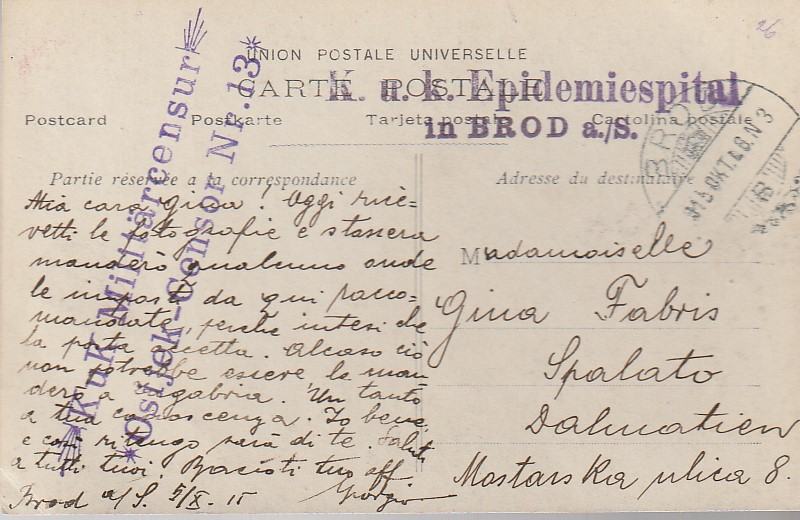 26
UNION POSTALE UNIVERSELLE
CARTE POSTALE
K. u. k. Epidemiespital
in BROD a./S.
Postcard Postkarte Tarjeta postale Cartolina postale
Partie réservée a la correspondance
Adresse du destinataire
K. u. k. Militärcensur
Osijek-Censor Nr. 13
BROD
915 OKT. 6 8. N 3
B
Mia cara Gina! Oggi rice-
vetti le fotografie e stassera
manderò qualcuno onde
le imposti da qui racco-
mandate, perche intesi che
la posta accetta. Al caso ciò
non potrebbe essere le man-
derò a Zagabria. Un tanto
a tua conoscenza. Io bene,
e così ritengo sarà di te. Saluti
a tutti tuoi. Bacioti tuo aff.
Giorgio
Brod a/S. 5/X. 15
Mademoiselle
Gina Fabris
Spalato
Dalmatien
Mostarska ulica 8.